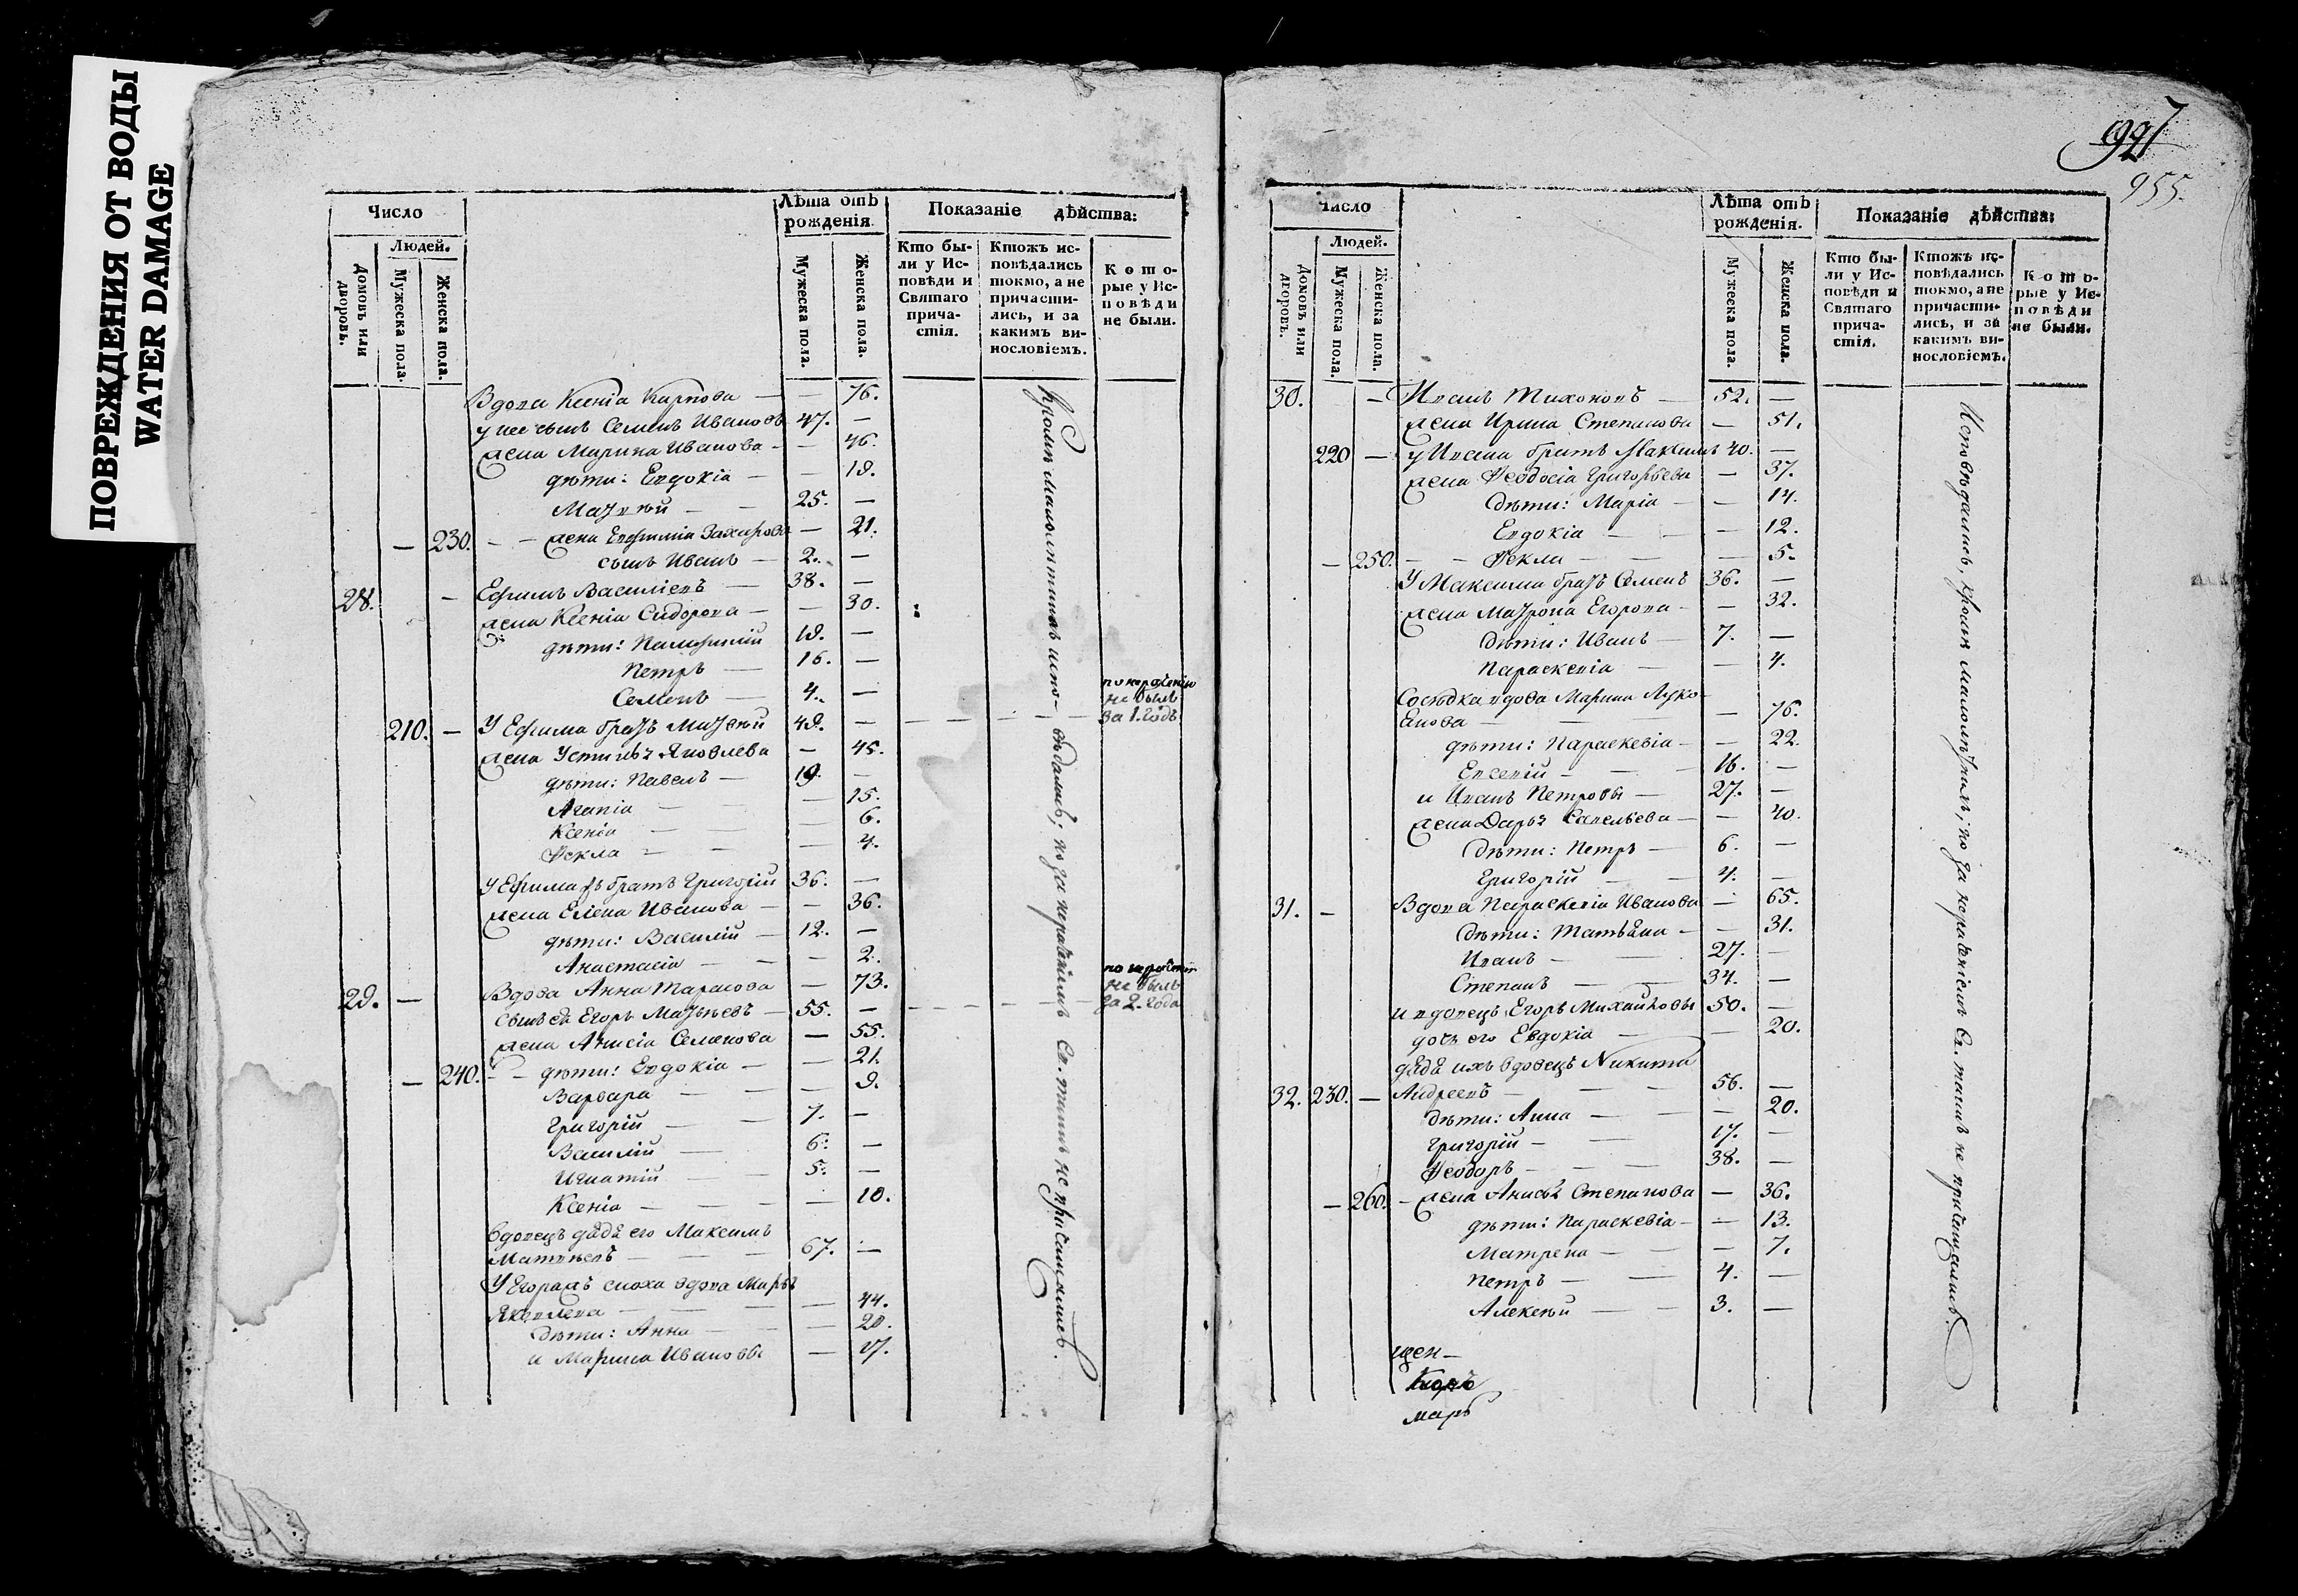 ПОВРЕЖДЕНИЯ ОТ ВОДЫ
WATER DAMAGE
Число
Людей.
Домовъ или дворовъ.
Мужеска пола.
Женска пола.
Лѣта отъ рожденія.
Мужеска пола.
Женска пола.
Показаніе дѣйства:
Кто были у Исповѣди и Святаго причастія.
Ктожъ исповѣдались токмо, а не причастились, и за какимъ винословіемъ.
Которые у Исповѣди не были.
Вдова Ксенія Карпова — — 76.
у нее сынъ Семенъ Ивановъ 47. —
жена Марина Иванова — — 46.
дѣти: Евдокія — — 19.
Матвѣй — — 25. —
— 230. — — жена Евфимія Захарова — 21.
сынъ Иванъ — 2. —
28. — Ефимъ Василіевъ — 38. —
жена Ксенія Сидорова — — 30.
дѣти: 19. —
Петръ — 16. —
Семенъ — 4. —
210. — У Ефима братъ Матвѣй 49. — — — — — — — по нераденію не былъ за 1. годъ
жена Устинья Яковлева — 45.
дѣти: Павелъ — 19. —
Агапіа — — — 15.
Ксенія — — — 6.
Фекла — — — 4.
У Ефима жъ братъ Григорій 36. —
жена Елена Иванова — — 36.
дѣти: Василій — 12. —
Анастасіа — — — 2.
29. — Вдова Анна Тарасова — 73.
сынъ ея Егоръ Матвѣевъ — 55. — — — — — — — по нераденію не былъ за 2. года
жена Анисіа Семенова — 55.
— 240. — — дѣти: Евдокіа — — 21.
Варвара — — — 9.
Григорій — — 7. —
Василій — 6. —
Игнатій — — 5. —
Ксенія — — — — 10.
вдовецъ дядя его Максимъ
Матвѣевъ — — — 67. —
У Егора жъ сноха вдова Марья
Яковлева — — — — 44.
дѣти: Анна — — 20.
и Марина Ивановы — 17.
Кромѣ малолѣтныхъ исповѣдались; но за нераденіемъ Св. таинъ не причащились.
927
955.
Число
Людей.
Домовъ или дворовъ.
Мужеска пола.
Женска пола.
Лѣта отъ рожденія.
Мужеска пола.
Женска пола.
Показаніе дѣйства:
Кто были у Исповѣди и Святаго причастія.
Ктожъ исповѣдались токмо, а не причастились, и за какимъ винословіемъ.
Которые у Исповѣди не были.
30. — Иванъ Тихоновъ — 52. —
жена Ирина Степанова — 51.
220 — у Ивана братъ Максимъ 40. —
жена Феодосіа Григорьева — 37.
дѣти: Маріа — — 14.
Евдокіа — — — 12.
— 250. — — Фекла — — — 5.
У Максима братъ Семенъ 36. —
жена Матрона Егорова — — 32.
дѣти: Иванъ — 7. —
Параскевіа — — 4.
Сосѣдка вдова Марина Луко-
янова — — — — 76.
дѣти: Параскевіа — — 22.
Евсевій — — — 16. —
и Иванъ Петровы — 27. —
жена Дарья Савельева — — 40.
дѣти: Петръ — 6. —
Григорій — — 4. —
31. — Вдова Параскевіа Иванова — 65.
дѣти: Татьяна — — 31.
Иванъ — — 27. —
Степанъ — — 34. —
и вдовецъ Егоръ Михайловы 50. —
дочь его Евдокіа — — 20.
дядя ихъ вдовецъ Никита
32. 230. — Андреевъ — — — 56. —
дѣти: Анна — — — 20.
Григорій — — 17. —
Феодоръ — — — 38. —
— 260. — жена Анисья Степанова — 36.
дѣти: Параскевіа — — 13.
Матрена — — — 7.
Петръ — — 4. —
Алексѣй — — 3. —
Исповѣдались, кромѣ малолѣтнихъ; но за нераденіемъ Св. таинъ не причащались.
щен—